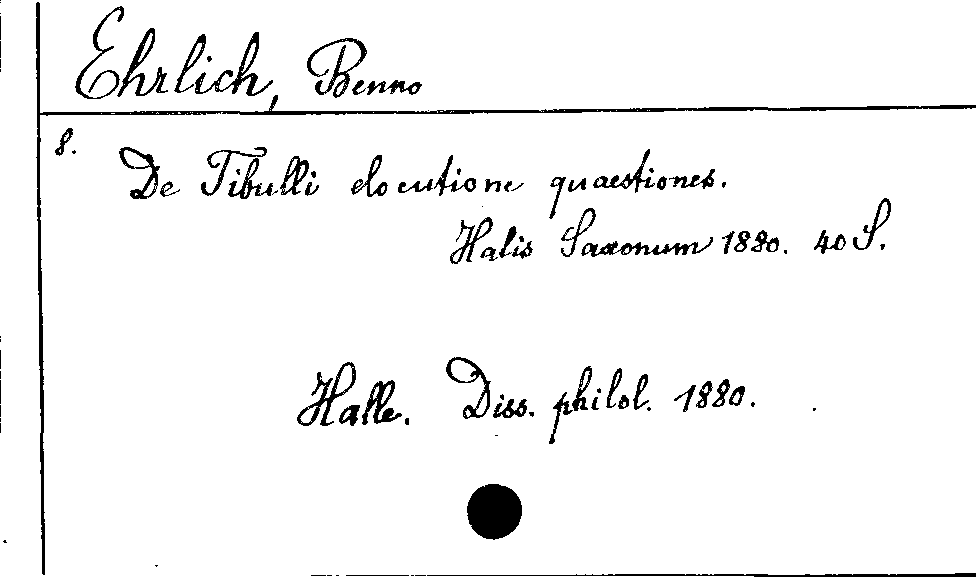 Ehrlich, Benno
8.
De Tibulli elocutione quaestiones.
Halis Saxonum 1880. 40 S.
Halle. Diss. philol. 1880.